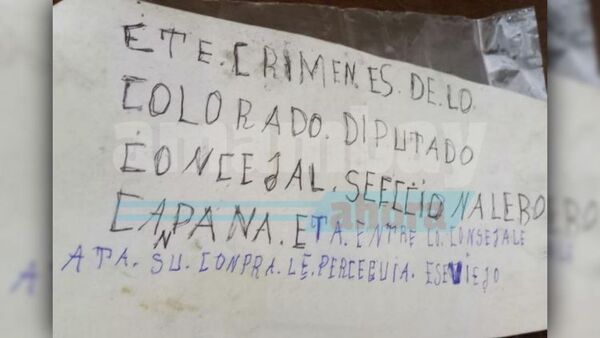 ETE. CRIMEN. ES. DE. LO.
COLORADO. DIPUTADO
CONCEJAL. SEFCCIONALERO
CANPANA. ETA. ENTRE LO. CONSEJALE
ATA. SU. CONPRA. LE. PERCEGUIA. ESE VIEJO
amambay
ahora